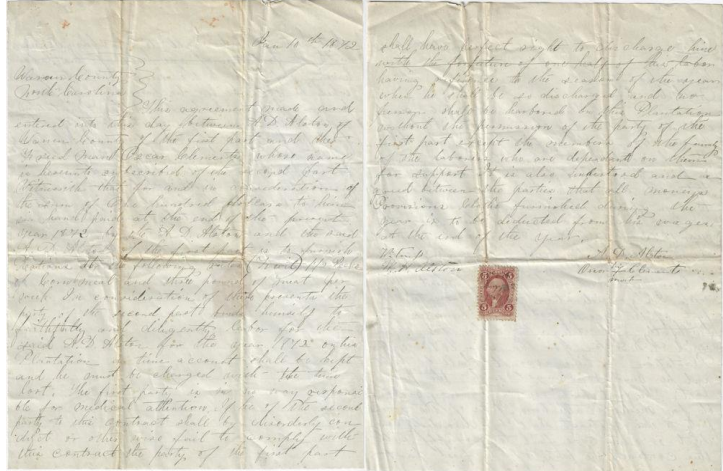 Jan 10th 1872
Warren County
North Carolina
This agreement made and
entered into this day between A D Alston of
Warren County of the first part and the
Freed man Oscar whose name
is hereunto of the second part
Witnesseth that for and in consideration of
the sum of One hundred dollars to him
in hand paid at the end of the present
year 1872 by the A D Alston and the said
A D Alston of the first part is to furnish
at the following
of Cornmeal and three pounds of meat per
week In consideration of these presents the
party of the second part himself to
faithfully and diligently labor for the
said A D Alston for the year 1872 on his
Plantation a time account shall be kept
and he must be charged with the time
lost. The first party is in no way responsi
ble for medical attention. If the second
party to this contract shall by disorderly con
duct or other wise fail to comply with
this contract the party of the first part
shall have perfect right to discharge him
with the of one half of the labor
having reference to the season of the year
when he shall be so discharged and no
person shall be harbored on this Plantation
without the permission of the party of the
first part except the members of the family
of the laborers who are dependent on them
for support It is also understood and a
greed between the parties that all moneys
Provisions Clothes furnished during the
year is to be deducted from his wages
at the end of the year.
Witness
A. D. Alston
Alston
his
mark
5
5